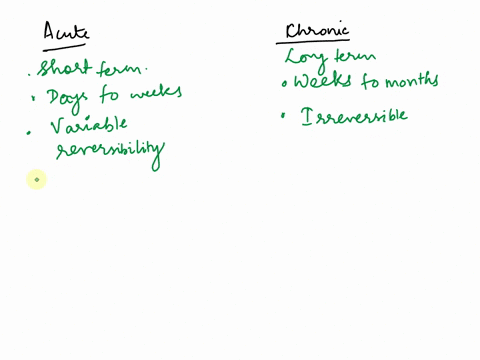 Acute
. Short term.
. Days to weeks
. Variable
reversibility
.
Chronic
Long term
. Weeks to months
. Irreversible